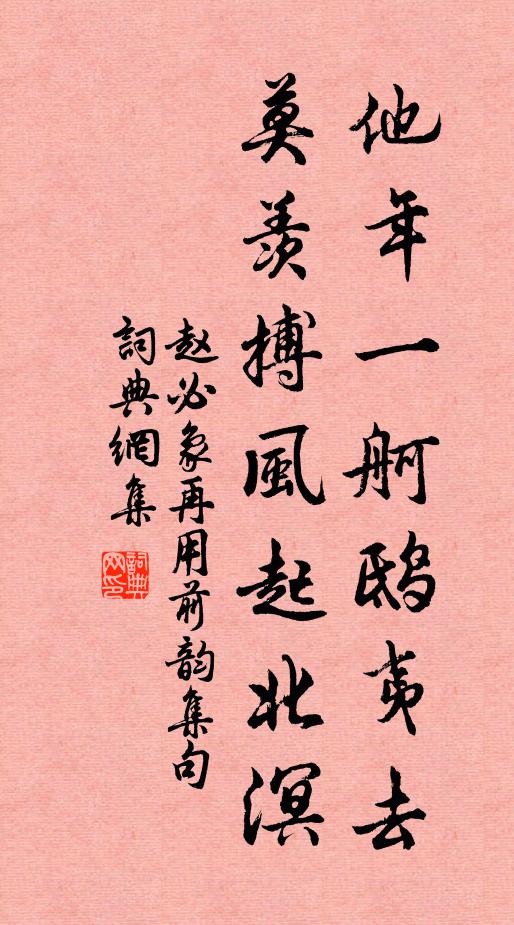 他年一舸鸱夷去
莫羡搏風起北溟
赵必象再用前韵集句
詞典網集
詞典网印